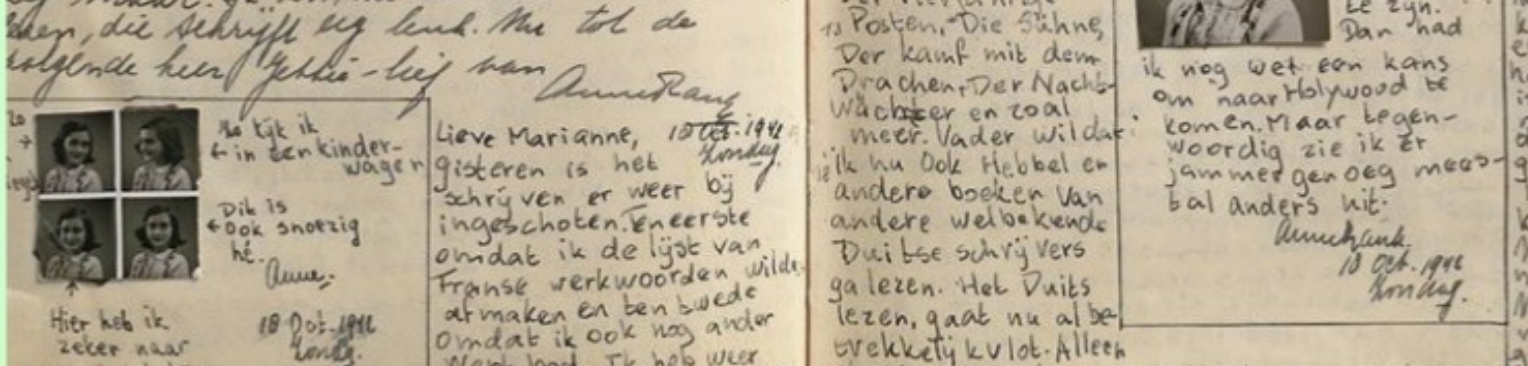 die schrijft
Nu tot de
volgende keer Jettie-lief van
Anne Frank
Zo kijk ik
← in een kinder-
wagen
Dit is
← ook snoezig
hé.
Anne.
Hier heb ik
zeker naar
18 Oct. 1942
Zondag.
Lieve Marianne, 18 Oct. 1942
Zondag.
gisteren is het
schrijven er weer bij
ingeschoten. Teneerste
omdat ik de lijst van
Franse werkwoorden wilde
afmaken en ten twede
omdat ik ook nog ander
werk had. Ik heb weer
Posten, Die Sühne,
Der kamf mit dem
Drachen, Der Nacht-
wächter en zoal
meer. Vader wil dat
ik nu ook Hebbel en
andere boeken van
andere welbekende
Duitse schrijvers
ga lezen. Het Duits
lezen, gaat nu al be-
trekkelijk vlot. Alleen
te zijn.
Dan had
ik nog wel een kans
om naar Holywood te
komen. Maar tegen-
woordig zie ik er
jammer genoeg mees-
tal anders uit.
Anne Frank.
18 Oct. 1942
Zondag.